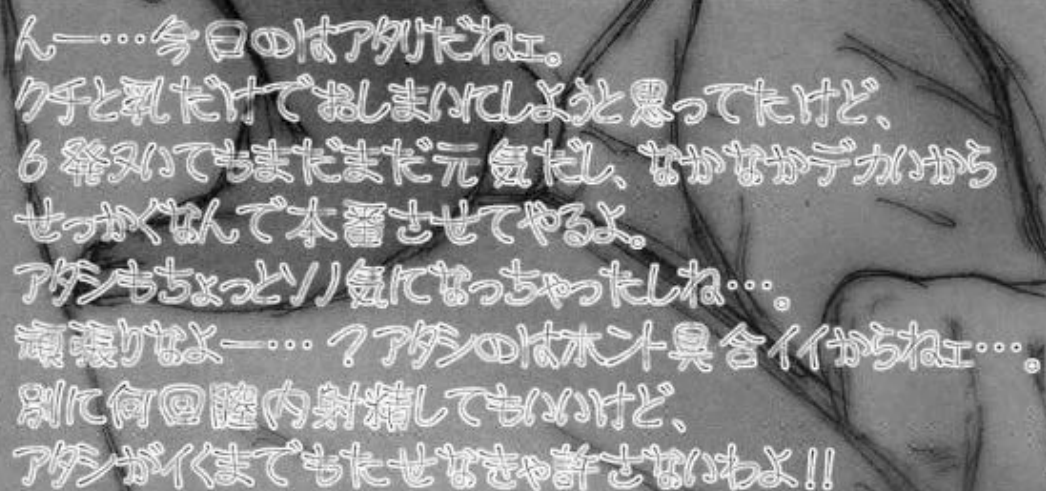 んー…今日のはアタリだねェ。
クチと乳だけでおしまいにしようと思ってたけど、
6発ヌいてもまだまだ元気だし、なかなかデカいから
せっかくなんで本番させてやるよ。
アタシもちょっとソノ気になっちゃったしね…。
頑張りなよー…？アタシのはホント具合イイからねェ…。
別に何回膣内射精してもいいけど、
アタシがイくまでもたせなきゃ許さないわよ!!